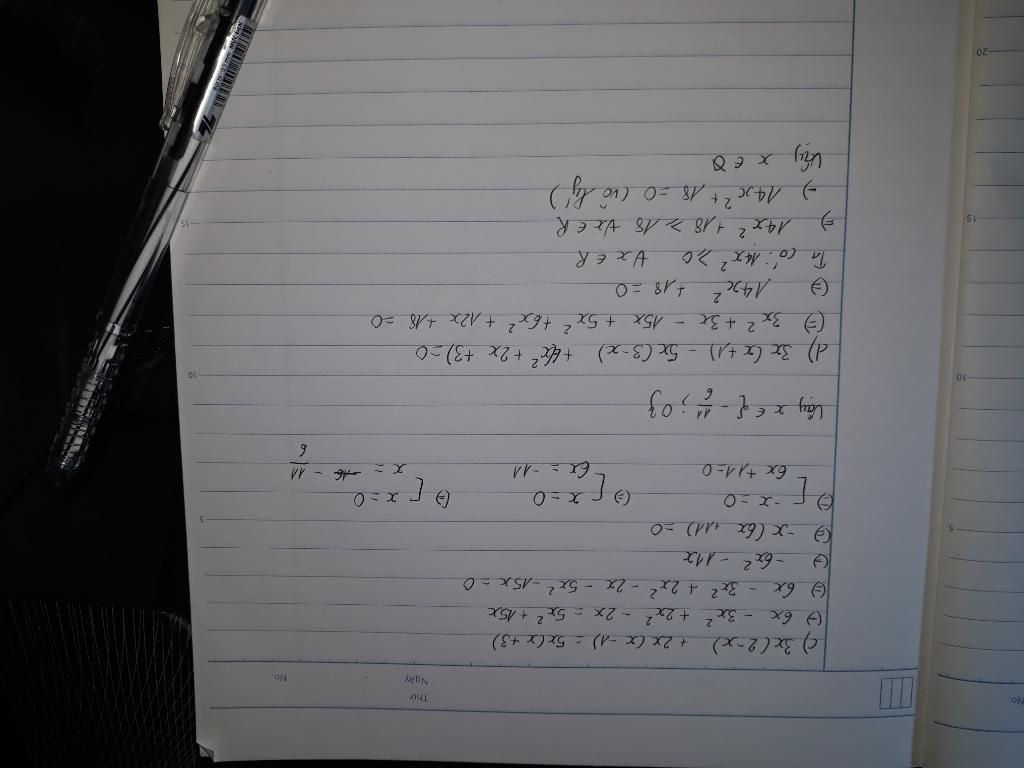 Thứ
Ngày
No.
c) 3x(2-x) + 2x(x-1) = 5x(x+3)
(=) 6x - 3x² + 2x² - 2x = 5x² + 15x
(=) 6x - 3x² + 2x² - 2x - 5x² - 15x = 0
(=) -6x² - 11x
(=) -x(6x + 11) = 0
(=) [ -x = 0 (=) [ x = 0 (=) [ x = 0
6x + 11 = 0 6x = -11 x = - 11/6
Vậy x ∈ { - 11/6 ; 0 }
d) 3x(x+1) - 5x(3-x) + 6(x² + 2x + 3) = 0
(=) 3x² + 3x - 15x + 5x² + 6x² + 12x + 18 = 0
(=) 14x² + 18 = 0
Ta có: 14x² ⩾ 0 ∀x ∈ R
=) 14x² + 18 ⩾ 18 ∀x ∈ R
=) 14x² + 18 = 0 (vô lý)
Vậy x ∈ ∅
5
10
15
No.
5
10
15
20